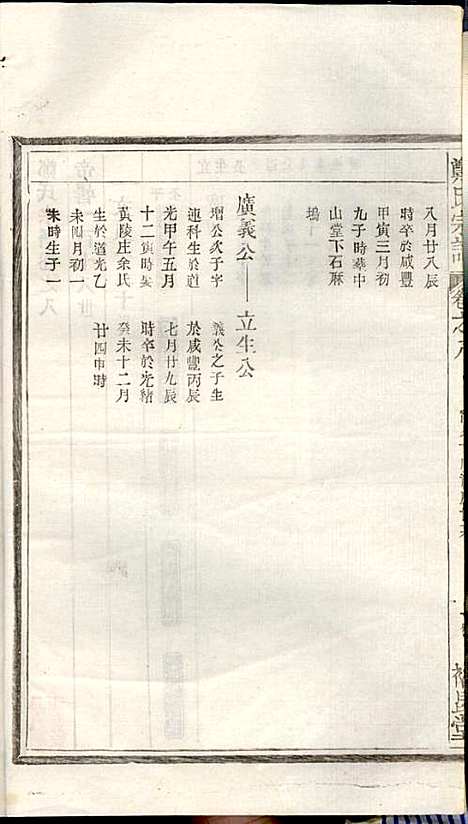 鄭氏宗譜
卷之八
八月廿八辰
時卒於咸豐
甲寅三月初
九子時葬中
山堂下石麻
塢
廣義公——立生公
增公次子字
運科生於道
光甲午五月
十二寅時娶
黃陵庄余氏
生於道光乙
未四月初一
未時生子一
義公之子生
於咸豐丙辰
七月廿九辰
時卒於光緒
癸未十二月
廿四申時